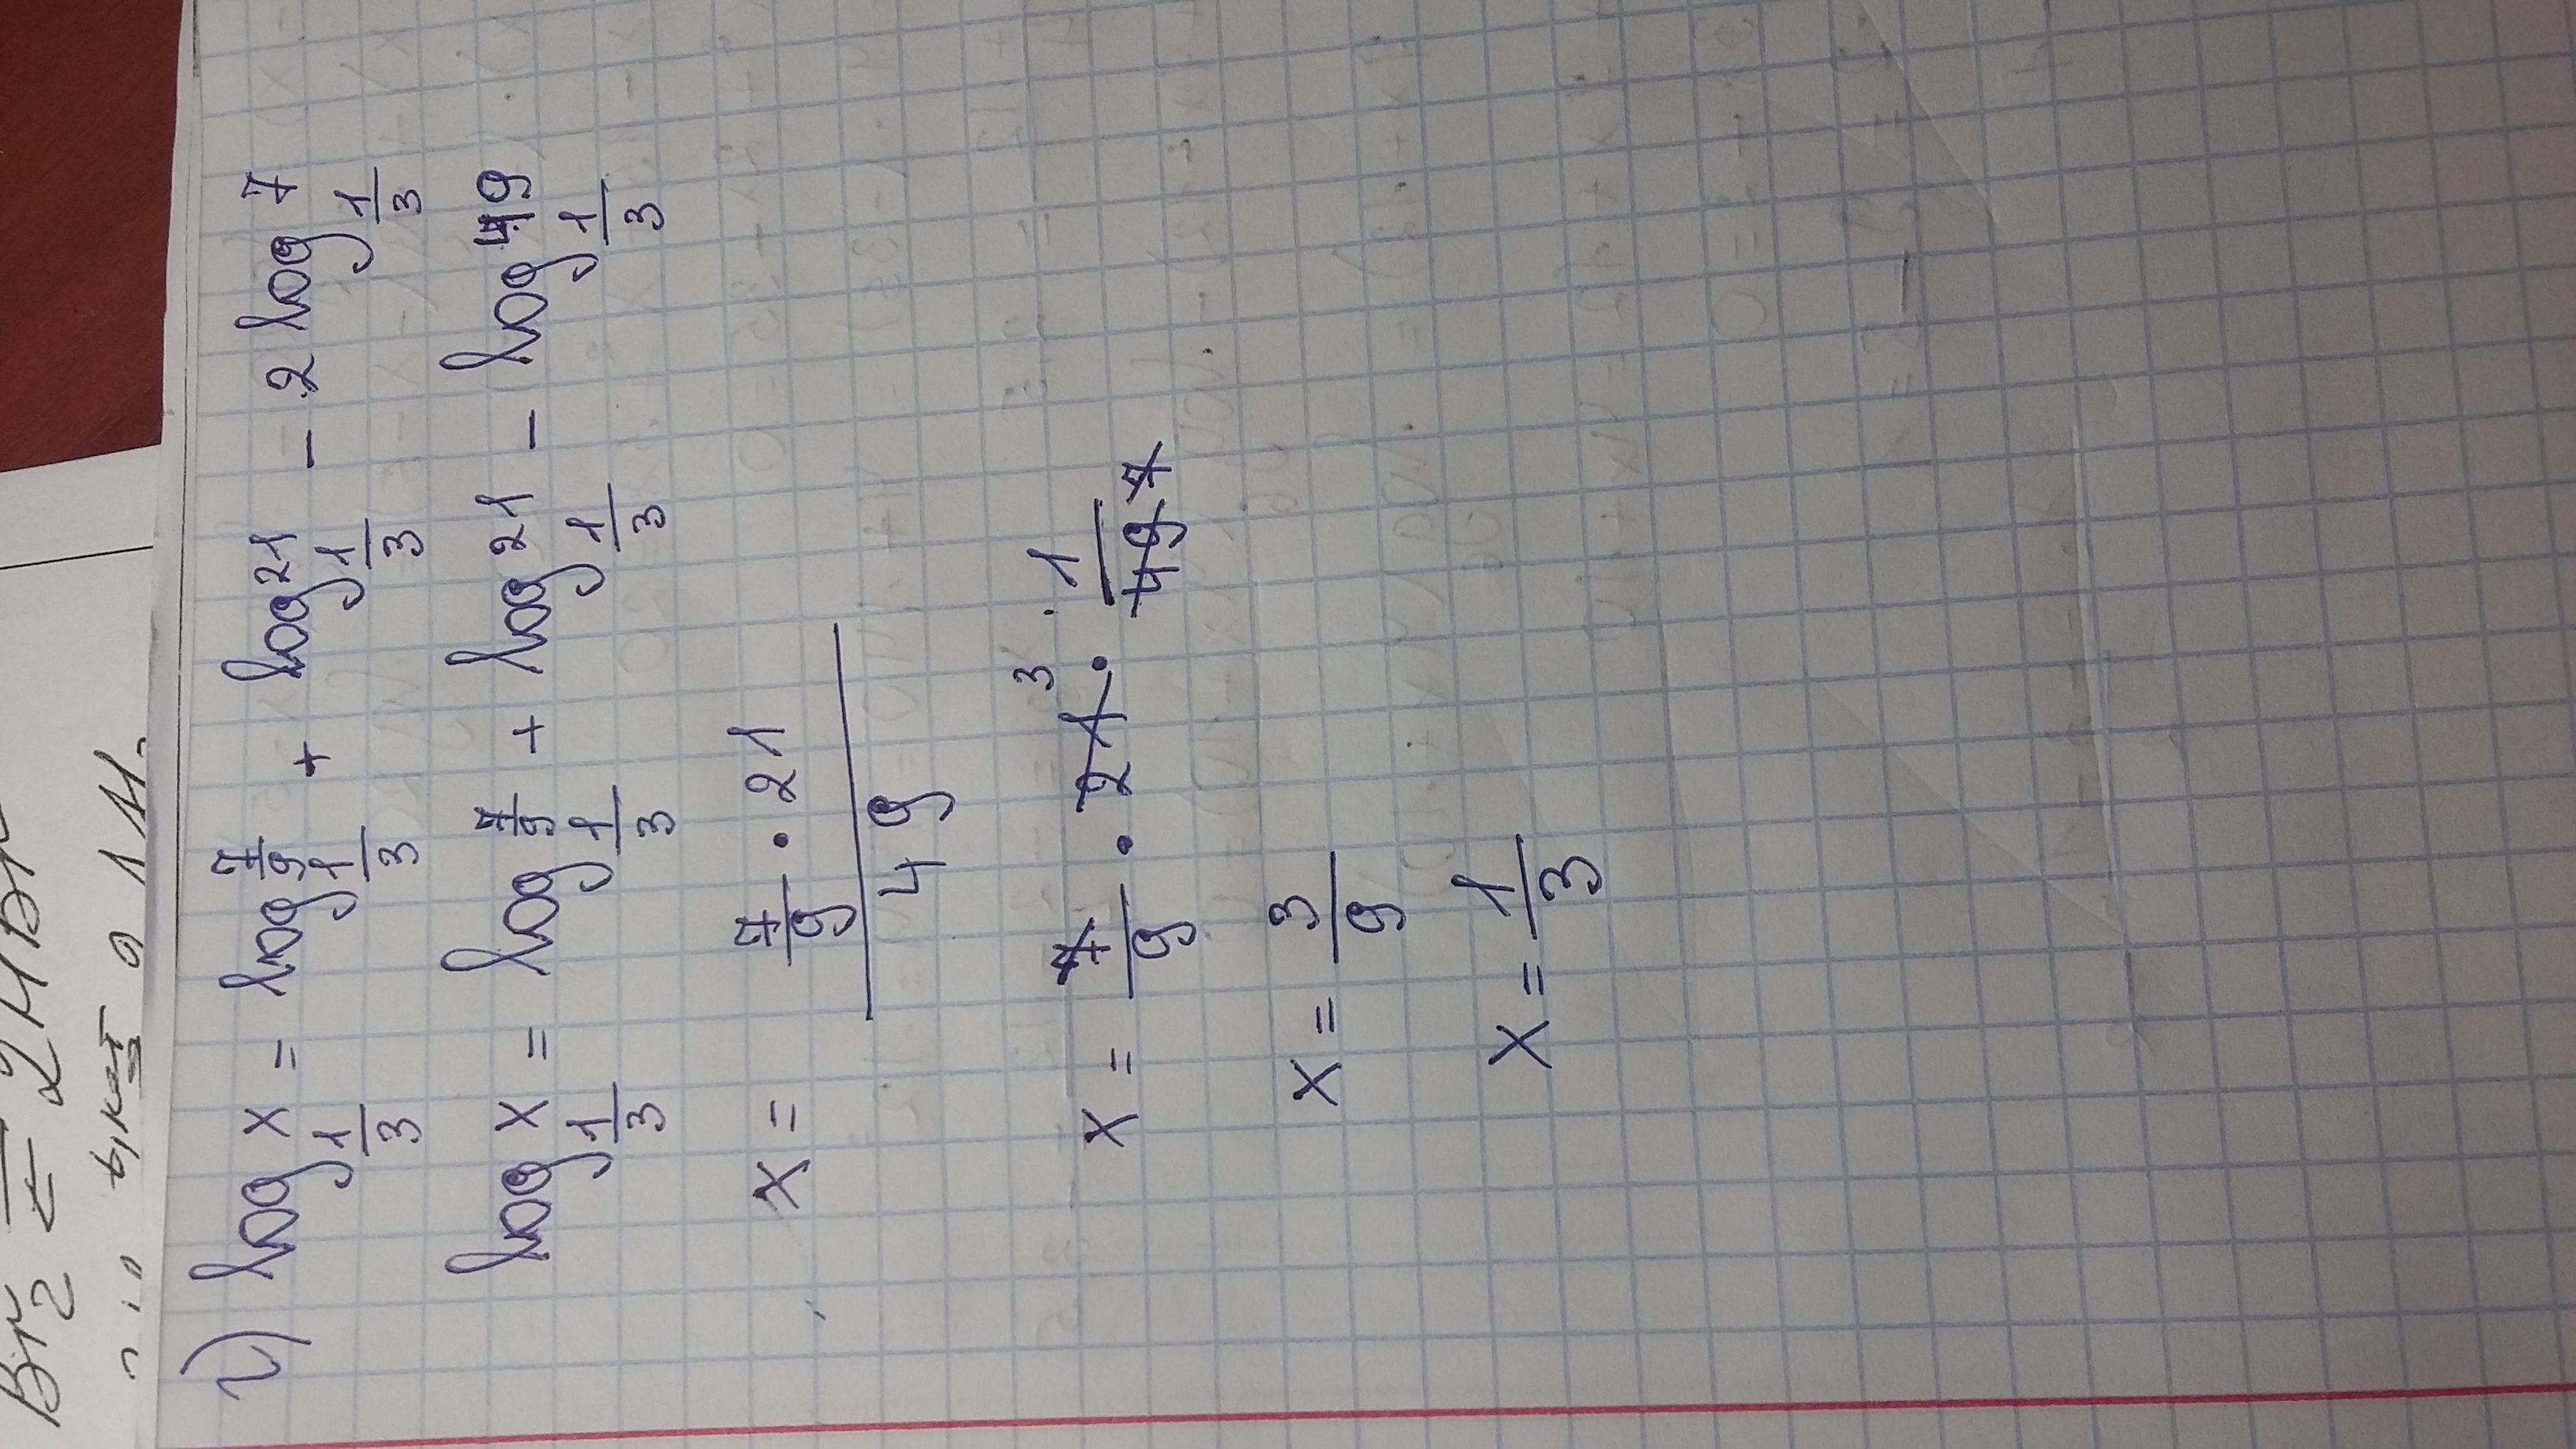 Br₂ ⇄ 2HBr
г) log_{1/3} x = log_{1/3} 7/9 + log_{1/3} 21 - 2 log_{1/3} 7
log_{1/3} x = log_{1/3} 7/9 + log_{1/3} 21 - log_{1/3} 49
x = (7/9 · 21)/49
x = 7/9 · 21 ³ · 1/49 7
x = 3/9
x = 1/3